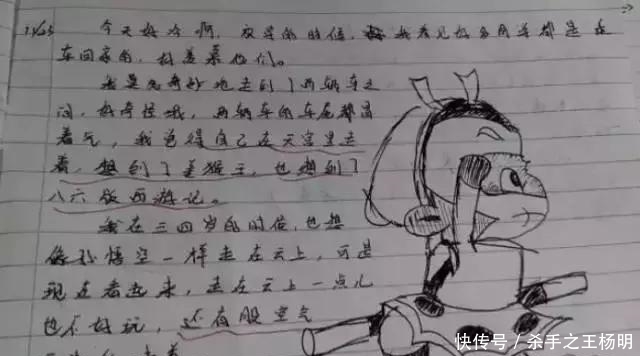 11/23
今天好冷啊，放学的时候，我看见好多同学都是坐
车回家的，好羡慕他们。
我莫名奇妙地走到了两辆车之
间，好奇怪哦，两辆车的车尾都冒
着气，我觉得自己在天宫里走
着，想到了美猴王，也想到了
八六版西游记。
我在三四岁的时候，也想
像孙悟空一样走在云上，可是
现在看起来，走在云上一点儿
也不好玩，还有股空气
快传号／杀手之王杨明